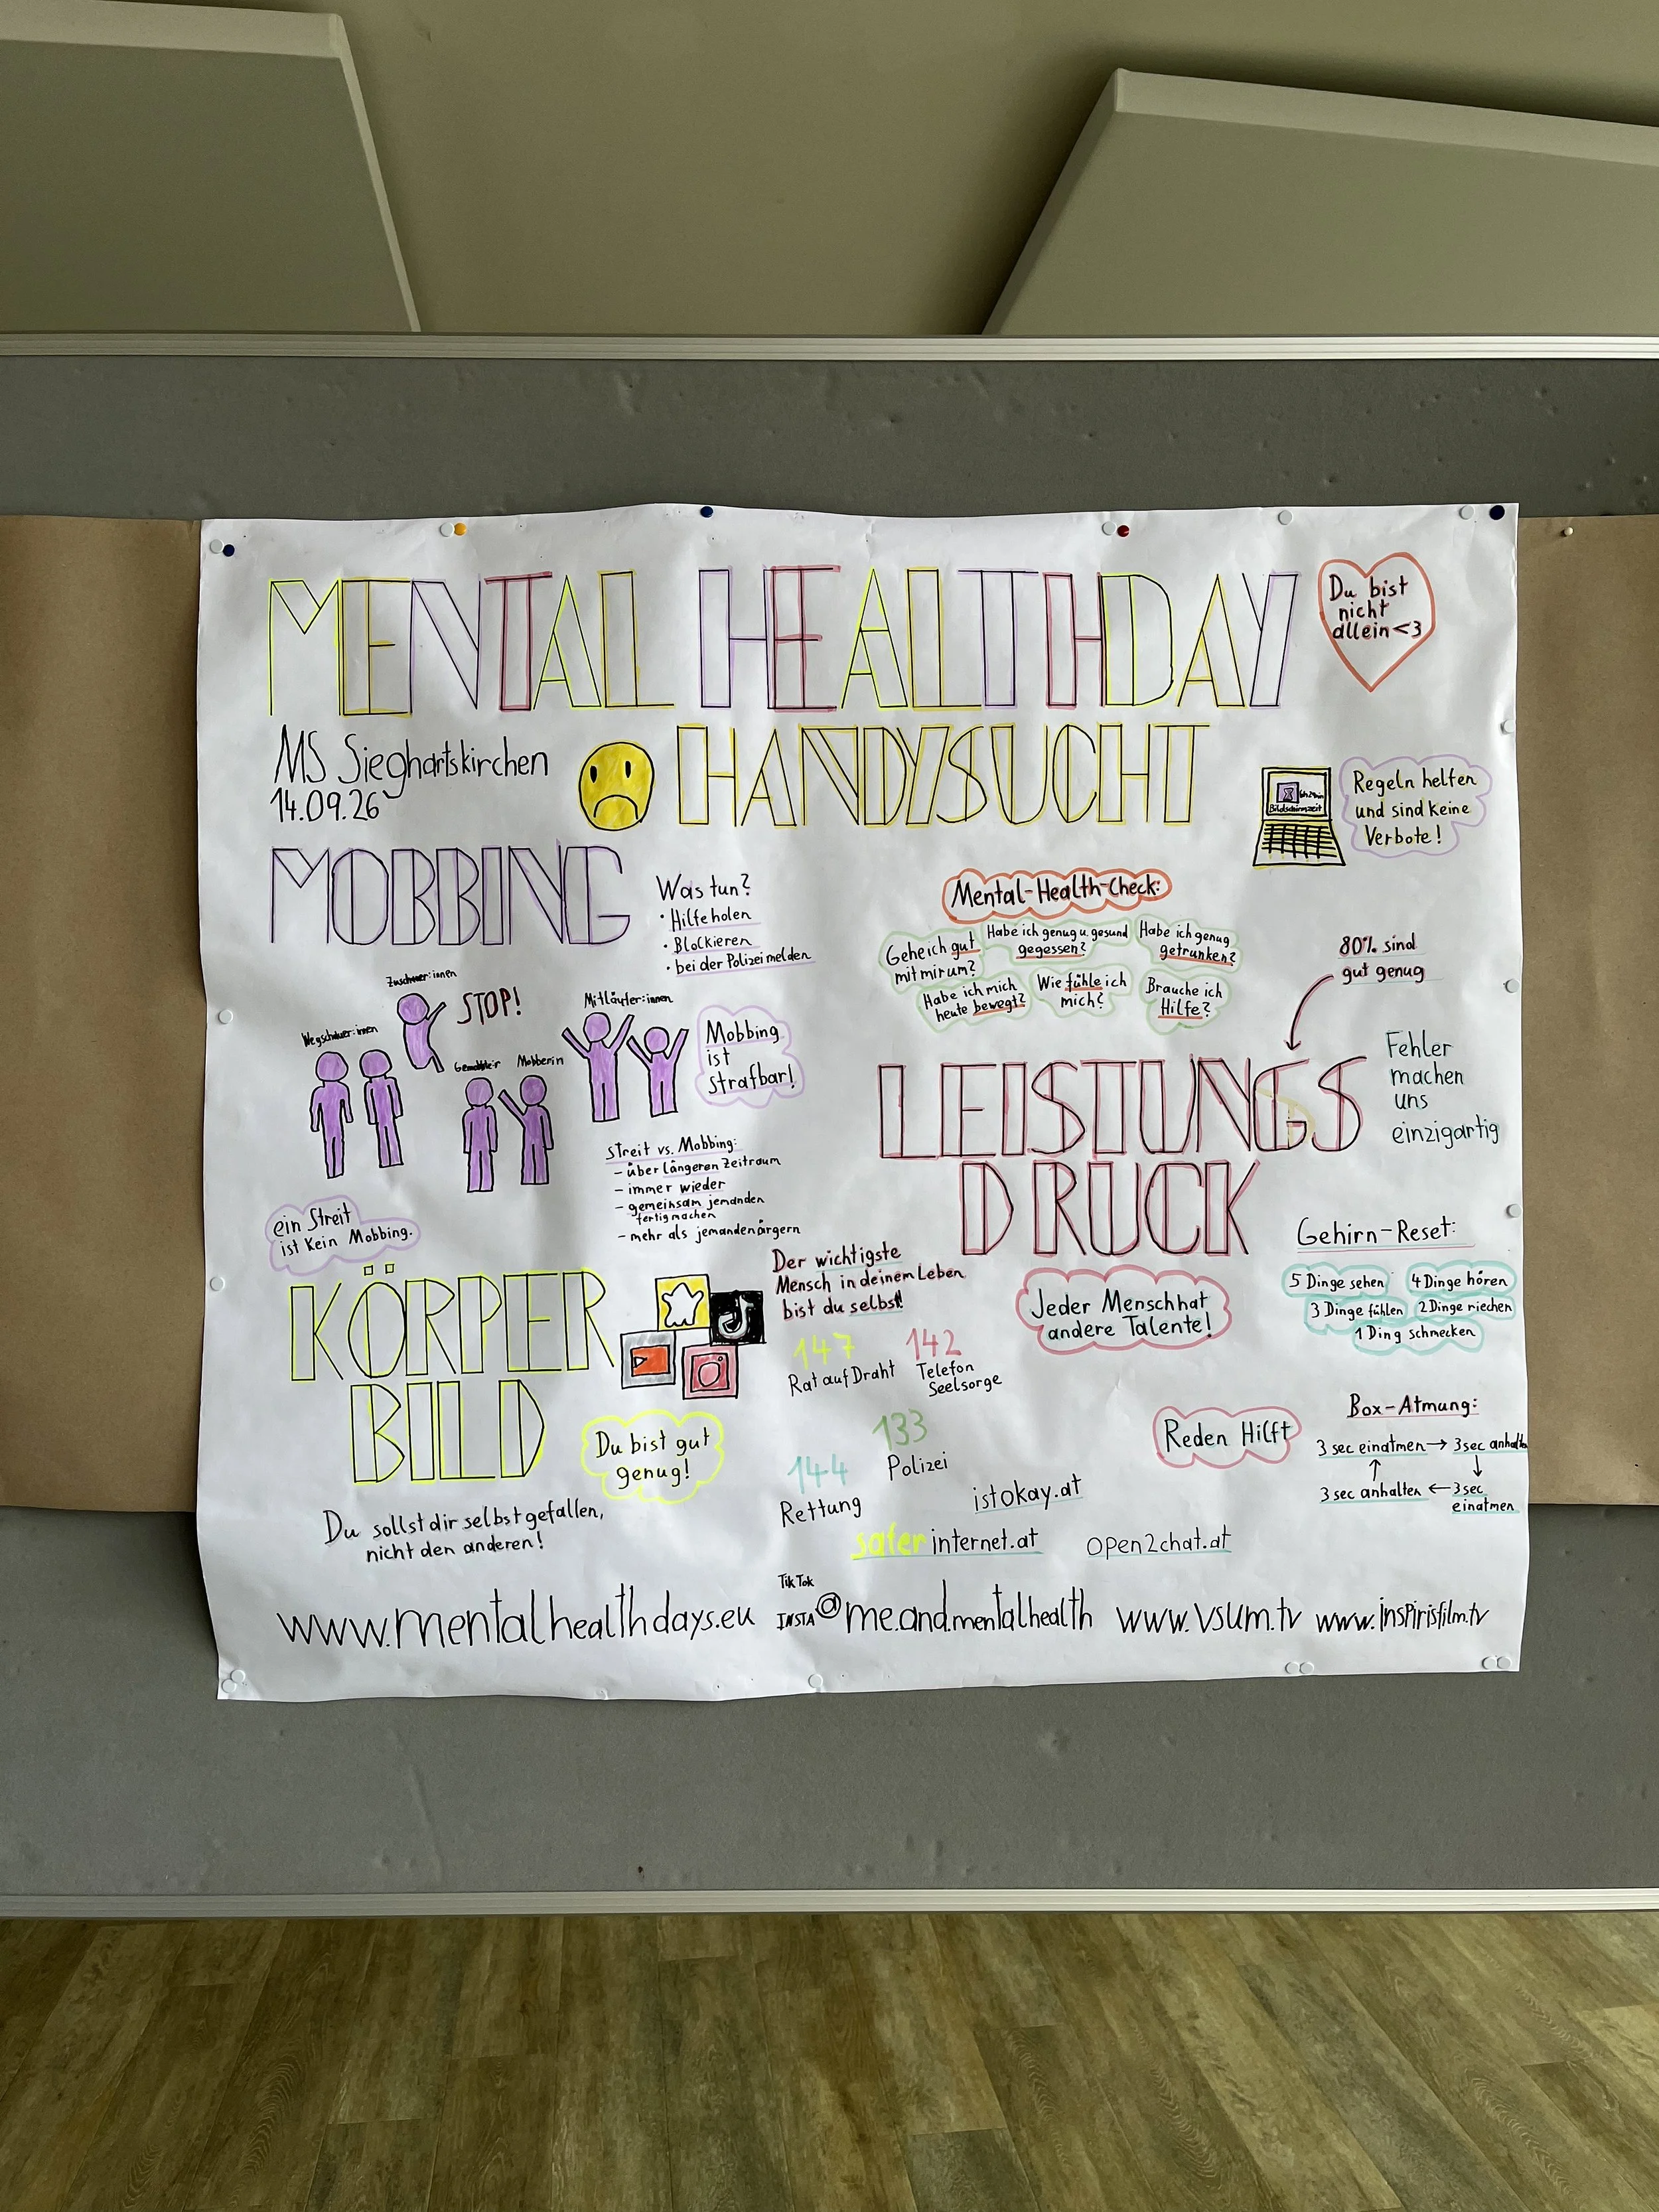 MENTAL HEALTHDAY
Du bist
nicht
allein<3
MS Sieghartskirchen
14.09.26
HANDYSUCHT
Bildschirmzeit
Regeln helfen
und sind keine
Verbote!
MOBBING
Was tun?
· Hilfe holen
· Blockieren
· bei der Polizei melden
Zuschauer:innen
STOP!
Wegschauer:innen
Mobberin
Mitläufer:innen
Mobbing
ist
strafbar!
streit vs. Mobbing:
- über längeren Zeitraum
- immer wieder
- gemeinsam jemanden
fertig machen
- mehr als jemanden ärgern
ein Streit
ist kein Mobbing.
Mental-Health-Check:
Gehe ich gut
mit mir um?
Habe ich genug u. gesund
gegessen?
Habe ich genug
getrunken?
Habe ich mich
heute bewegt?
Wie fühle ich
mich?
Brauche ich
Hilfe?
80% sind
gut genug
LEISTUNGS
DRUCK
Fehler
machen
uns
einzigartig
Jeder Mensch hat
andere Talente!
Gehirn-Reset:
5 Dinge sehen
4 Dinge hören
3 Dinge fühlen
2 Dinge riechen
1 Ding schmecken
KÖRPER
BILD
Du bist gut
genug!
Du sollst dir selbst gefallen,
nicht den anderen!
Der wichtigste
Mensch in deinem Leben
bist du selbst!
147
Rat auf Draht
142
Telefon
Seelsorge
133
Polizei
144
Rettung
Reden Hilft
Box-Atmung:
3 sec einatmen → 3 sec anhalten
↑ ↓
3 sec anhalten ← 3 sec
einatmen
istokay.at
saferinternet.at
open2chat.at
www.mentalhealthdays.eu
TikTok
INSTA @me.and.mentalhealth
www.vsum.tv
www.inspirisfilm.tv